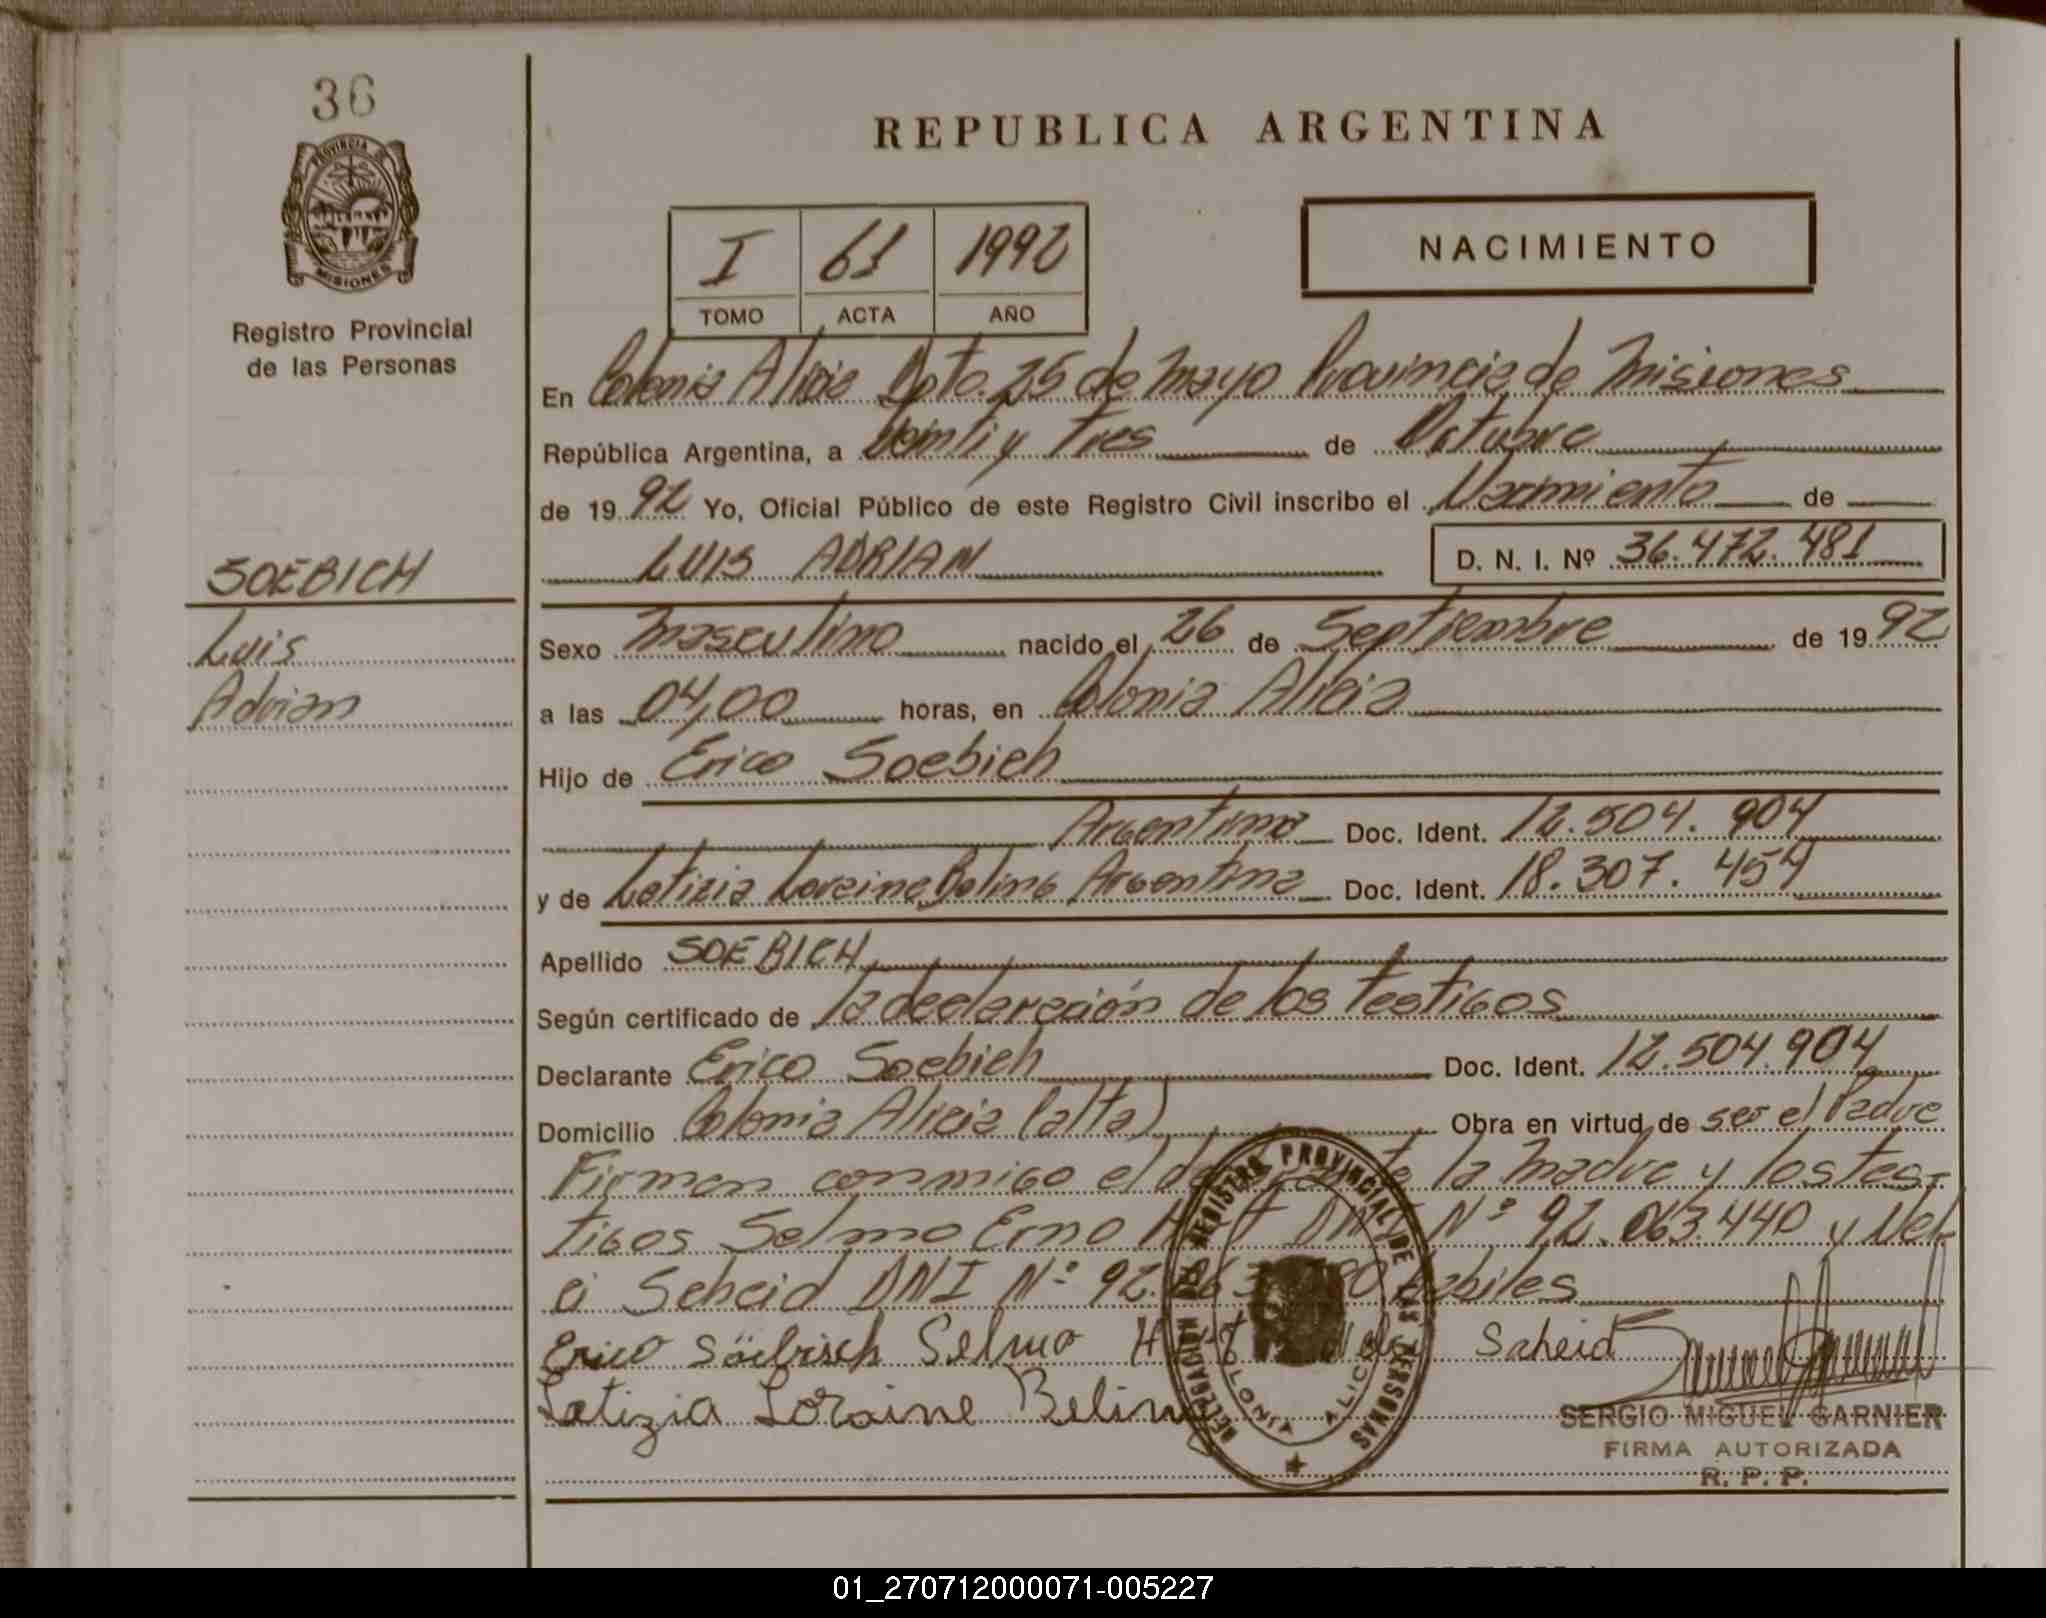 36
PROVINCIA DE
MISIONES
Registro Provincial
de las Personas
SOEBICH
Luis
Adrian
REPUBLICA ARGENTINA
I 61 1992
TOMO ACTA AÑO
NACIMIENTO
En Colonia Alicia Dpto. 25 de Mayo Provincia de Misiones
República Argentina, a Veinti y Tres de Octubre
de 1992 Yo, Oficial Público de este Registro Civil inscribo el Nacimiento de
LUIS ADRIAN D. N. I. Nº 36.472.481
Sexo Masculino nacido el 26 de Septiembre de 1992
a las 04,00 horas, en Colonia Alicia
Hijo de Erico Soebich
Argentino Doc. Ident. 12.504.904
y de Letizia Loraine Argentina Doc. Ident. 18.307.454
Apellido SOEBICH
Según certificado de la declaración de los testigos
Declarante Erico Soebich Doc. Ident. 12.504.904
Domicilio Colonia Alicia (alta) Obra en virtud de ser el Padre
Firman conmigo el la Madre y los tes-
tigos Selmo Erno DNI Nº 92.063.440 y Nel-
ci Scheid DNI Nº habiles
Erico Söebisch Selmo Saheid
Letizia Loraine Beling
DELEGACION DEL REGISTRO PROVINCIAL DE LAS PERSONAS
COLONIA ALICIA
SERGIO MIGUEL GARNIER
FIRMA AUTORIZADA
R. P. P.
01_270712000071-005227